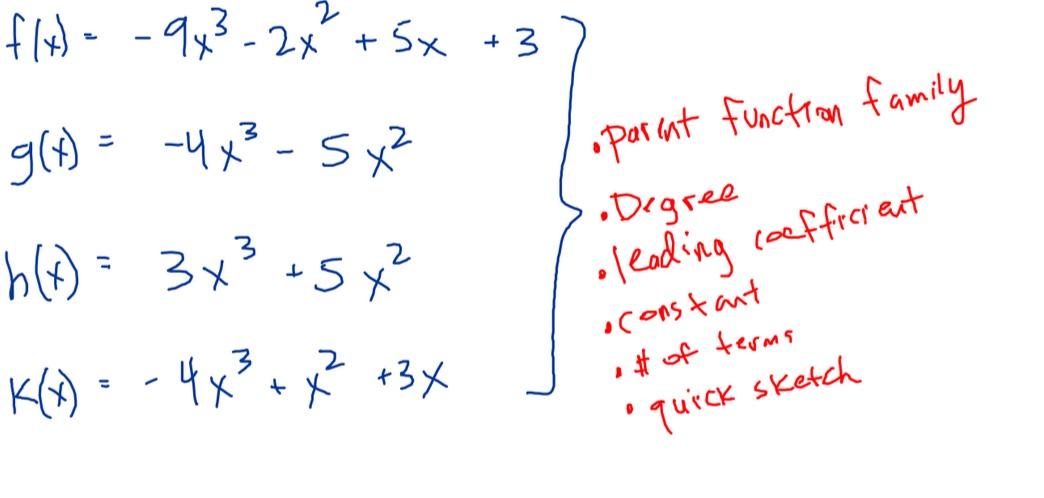 f(x) = -9x³ - 2x² + 5x + 3
g(x) = -4x³ - 5x²
h(x) = 3x³ + 5x²
K(x) = -4x³ + x² + 3x
• Parent function family
• Degree
• leading coefficient
• constant
• # of terms
• quick sketch